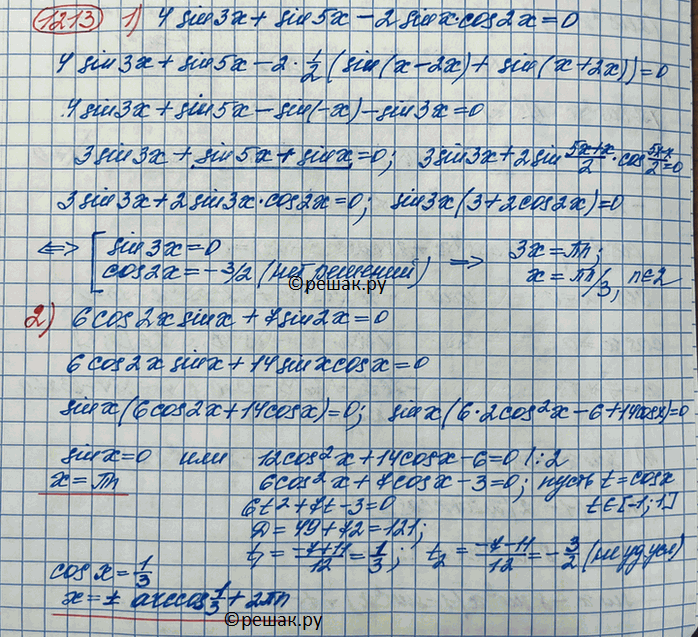 1213 1) 4 sin3x + sin5x - 2 sinx·cos2x = 0
4 sin3x + sin5x - 2·1/2 (sin(x-2x) + sin(x+2x)) = 0
4 sin3x + sin5x - sin(-x) - sin3x = 0
3 sin3x + sin5x + sinx = 0; 3 sin3x + 2 sin (5x+x)/2 · cos (5x-x)/2 = 0
3 sin3x + 2 sin3x·cos2x = 0; sin3x(3 + 2cos2x) = 0
⇔ [ sin3x = 0
cos2x = -3/2 (нет решений) ⇒ 3x = πn;
x = πn/3, n∈Z
©решак.ру
2) 6 cos2x sinx + 7 sin2x = 0
6 cos2x sinx + 14 sinxcosx = 0
sinx(6cos2x + 14cosx) = 0; sinx(6·2cos²x - 6 + 14cosx) = 0
sinx = 0 или 12cos²x + 14cosx - 6 = 0 |:2
x = πn 6cos²x + 7cosx - 3 = 0; пусть t = cosx
6t² + 7t - 3 = 0 t∈[-1; 1]
D = 49 + 72 = 121;
t₁ = (-7+11)/12 = 1/3; t₂ = (-7-11)/12 = -3/2 (не уд усл)
cosx = 1/3
x = ± arccos 1/3 + 2πn
©решак.ру